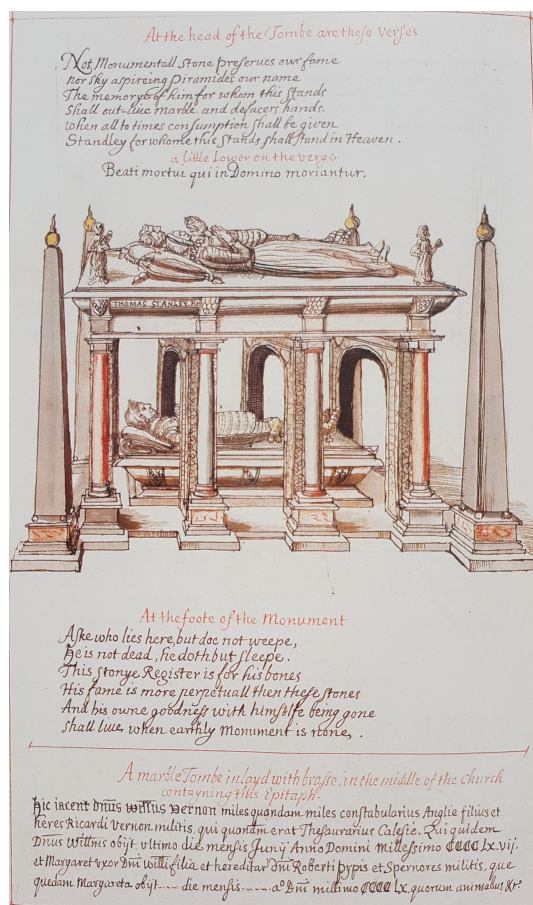 At the head of the Tombe are these Verses
Not Monumentall stone preserues our fame
nor sky aspireing Piramides our name
The memory of him for whom this stands
Shall out-liue marble, and defacers hands.
when all to times consumption shall be given
Standley for whome this stands shall stand in Heaven.
a little Lower on the verge.
Beati mortui qui in Domino moriantur.
THOMAS STANLEY
At the foote of the Monument
Aske who lies here, but doe not weepe,
He is not dead, he doth but sleepe.
This stonye Register is for his bones
His fame is more perpetuall then these stones
And his owne goodness with himselfe being gone
shall liue, when earthly Monument is none.
A marble Tombe inlayd with brasse, in the middle of the Church
contayning this Epitaph.
hic iacent dnus willus vernon miles quondam miles constabularius Anglie filius et
heres Ricardi vernon militis, qui quondam erat Thesaurarius Calesie. Qui quidem
Dnus willms obijt, vltimo die mensis Junij Anno Domini Millessimo CCCC Lx.vij.
et Margaret vxor Dni willi filia et hereditar dni Roberti pypis et Spernores militis, que
quedam Margareta obijt ..... die mensis ....... ao Dni millimo CCCC Lx, quorum animabus &c.